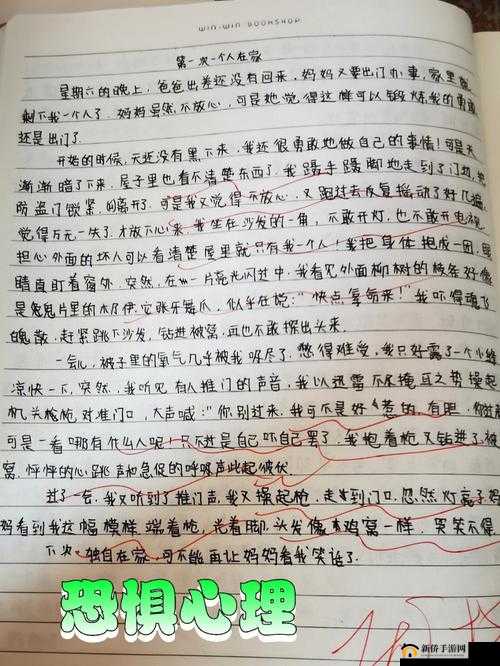 WIN-WIN BOOKSHOP
第一次一个人在家
星期六的晚上，爸爸出差还没有回来，妈妈又要出门办事，家里就
剩下我一个人了．妈妈虽然不放心，可是她觉得这样可以锻炼我的勇
还是出门了．
开始的时候，天还没有黑下来，我还很勇敢地做自己的事情！可是天
渐渐暗了下来，屋子里也看不清楚东西了．我蹑手蹑脚地走到了门边，把
防盗门锁紧，间离开了．可是我又觉得不放心．又跑过去反复摇动了好几遍，
觉得万无一失了．才放下心来．我坐在沙发的一角，不敢开灯，也不敢开电视，
担心外面的坏人可以看清楚屋里就只有我一个人！我把身体抱成一团，眼
睛直盯着窗外．突然，在一片亮光闪过中，我看见外面柳树的枝条好像
是鬼鬼片里的木乃伊，它张牙舞爪，似乎在说："快点，拿命来！"我吓得魂飞
魄散，赶紧跳下沙发，钻进被窝，再也不敢探出头来．
一会儿，被子里的氧气几乎被我吸尽了．憋得难受，我只好露了一个小缝
凉快一下，突然，我听见有人推门的声音，我以迅雷不及掩耳之势操起
机关枪枪对准门口，大声喊："你别过来，我可不是好惹的，有胆，你过
可是一看哪有什么人呢！只不过是自己吓自己罢了．我抱着枪又钻进了被
窝．怦怦的心跳声和急促的呼吸声此起彼伏．
过了一会，我又听到了推门声，我又操起枪．走到门口，忽然灯亮了，妈
妈看到我这幅模样：端着枪，光着脚，头发像鸡窝一样，哭笑不得．
下次，独自在家，可不能再让妈妈看我笑话了．
恐惧心理
新侨手游网